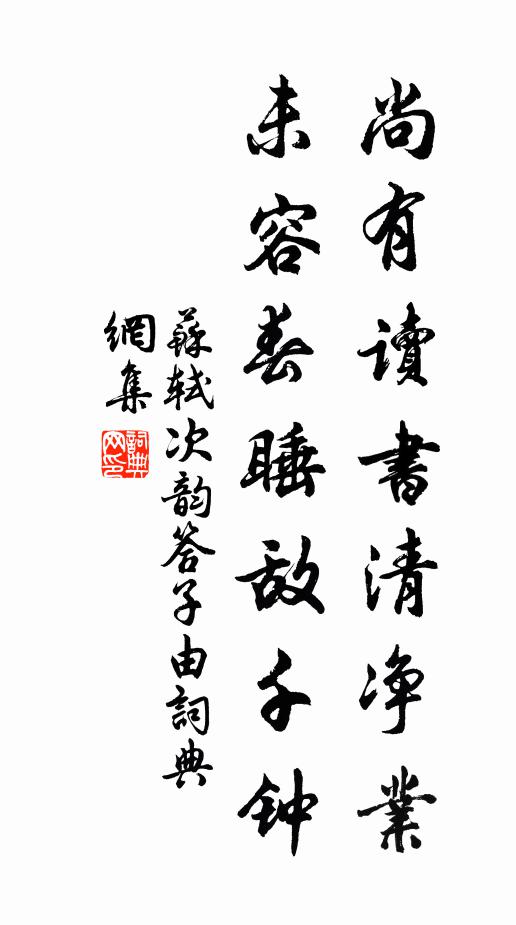 尚有讀書清净業
未容春睡敌千钟
蘇軾次韵答子由詞典
網集
詞典
网印